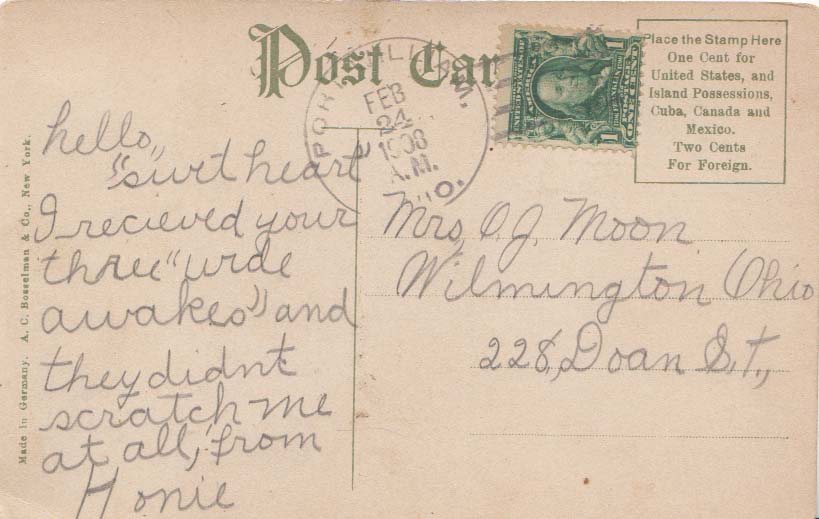 Post Car
PORT WILLIAM
FEB
24
1908
A.M.
O.
1 1
Place the Stamp Here
One Cent for
United States, and
Island Possessions,
Cuba, Canada and
Mexico.
Two Cents
For Foreign.
Made in Germany. A. C. Bosselman & Co., New York.
hello,
"swet heart"
I recieved your
three "wide
awakes" and
they didnt
scratch me
at all, from
Honie
Mrs, O.J. Moon
Wilmington Ohio
228, Doan S.t.,